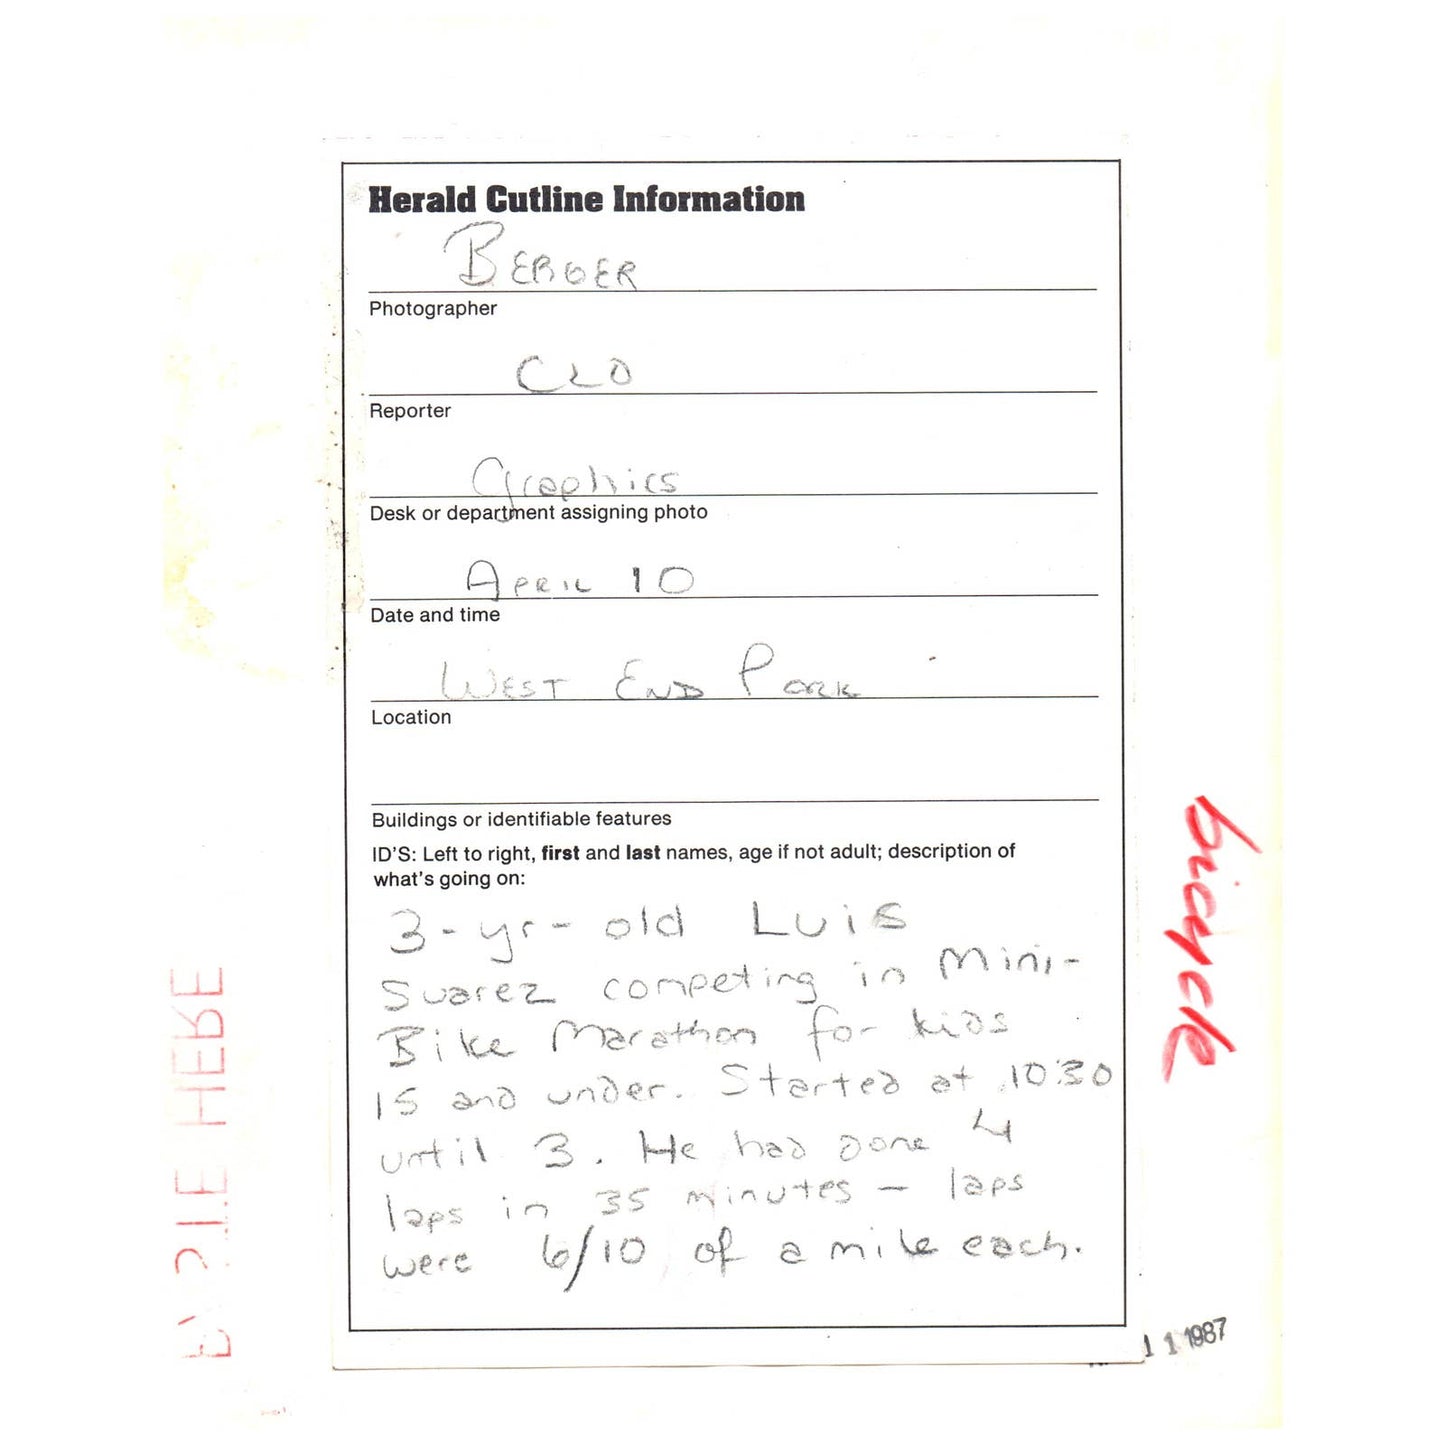 Herald Cutline Information
BERGER
Photographer
CLO
Reporter
Graphics
Desk or department assigning photo
April 10
Date and time
West End Park
Location
Buildings or identifiable features
ID'S: Left to right, first and last names, age if not adult; description of
what's going on:
3-yr-old Luis
Suarez competing in Mini-
Bike Marathon for kids
15 and under. Started at 10:30
until 3. He had done 4
laps in 35 minutes – laps
were 6/10 of a mile each.
bicycle
PASTE HERE
11 1987